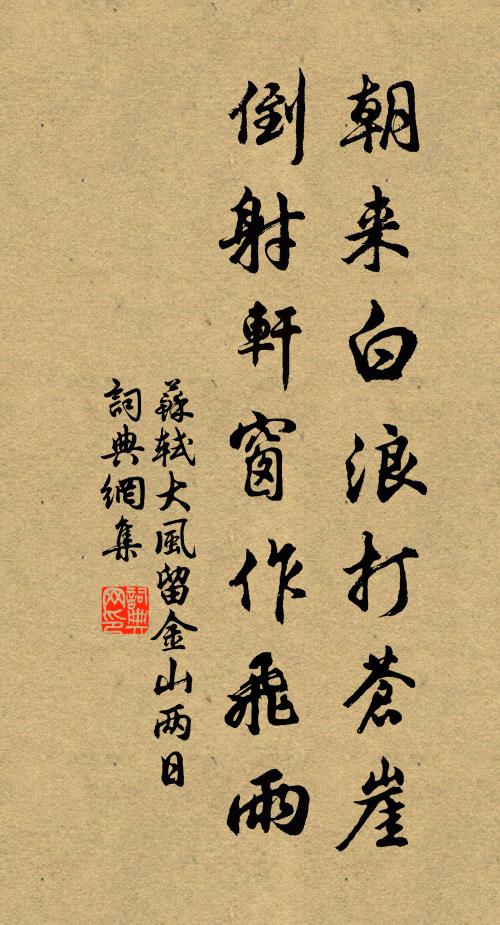 朝来白浪打苍崖
倒射軒窗作飛雨
蘇軾大風留金山两日
詞典網集
詞典网印